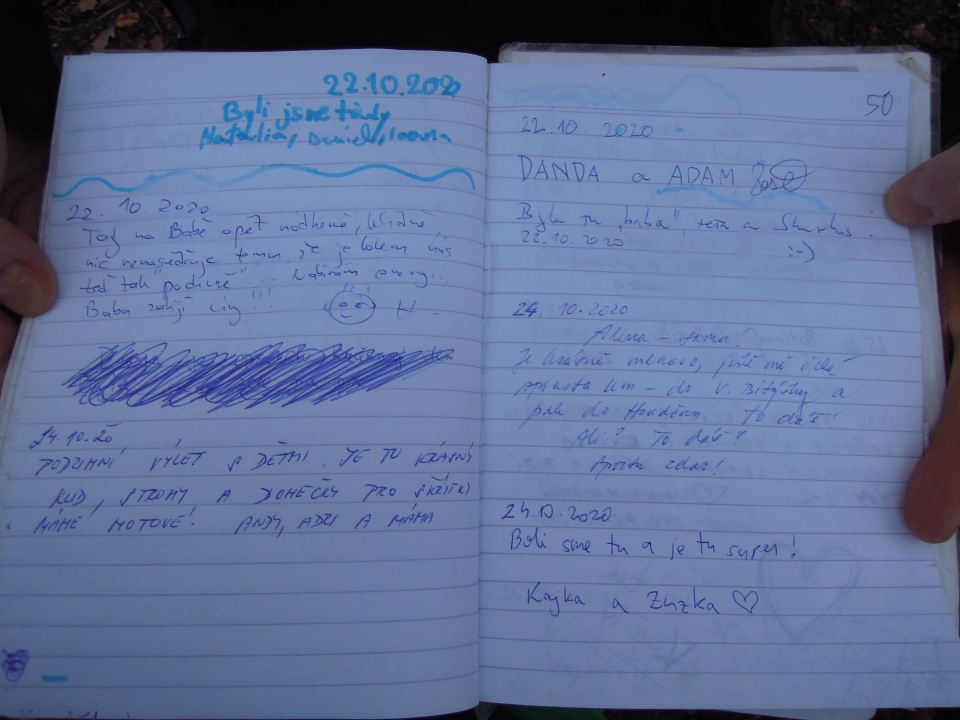 22.10.2020
Byli jsme tudy
Natálie, Daniel,
22. 10. 2020
Tady na Babě opět nádherně, klidně,
nic nenasvědčuje tomu, že je kolem nás
teď tak "podivně" ... energy...
Baba !!!
24.10.20
PODZIMNÍ VÝLET S DĚTMI. JE TU KRÁSNÝ
KLID, STROMY A DOMEČKY PRO SKŘÍTKY
MÁME HOTOVÉ! ANDY, ADRI A MÁMA
50
22.10. 2020
DANDA a ADAM
Byla tu "baba",
22.10.2020
:-)
24. 10.2020
Alena - sama.
Je krásně mlhavo, ještě mě čeká
spousta km - do V. Bítýšky a
pak do To dáš!
Ali? To dáš!
zdar!
24.10.2020
Boli sme tu a je tu super!
Kajka a Zuzka ♡